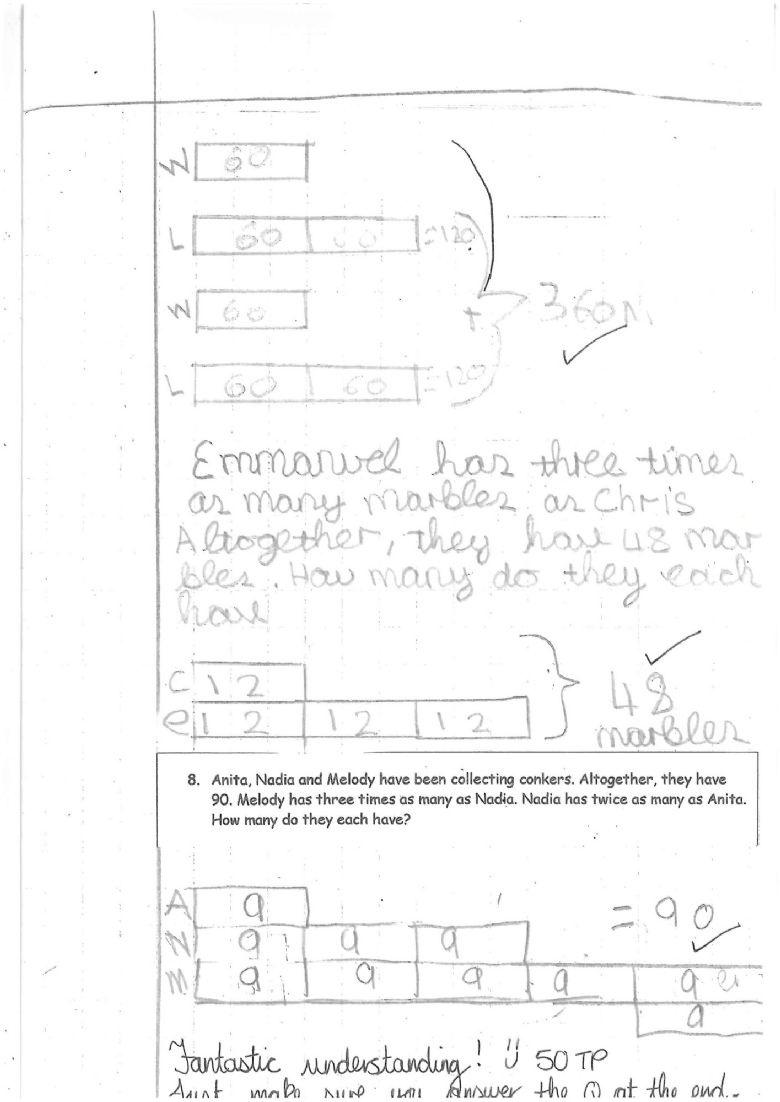 W 60
L 60 60 =120
W 60
+ 360m
L 60 60 =120
Emmanuel has three times
as many marbles as Chris
Altogether, they have 48 mar
bles. How many do they each
have
C 12
e 12 12 12
48
marbles
8. Anita, Nadia and Melody have been collecting conkers. Altogether, they have
90. Melody has three times as many as Nadia. Nadia has twice as many as Anita.
How many do they each have?
A 9
= 90
N 9 9 9
M 9 9 9 9 9
9
Fantastic understanding! 50 TP
Just make sure you answer the Q at the end.